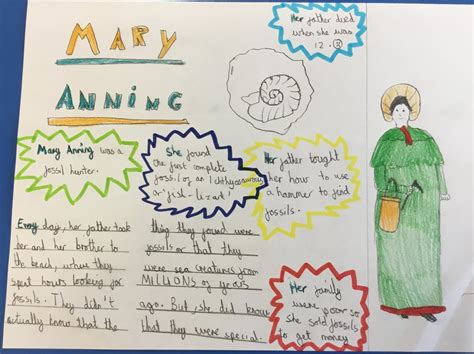 MARY
ANNING
Her father died
when she was
12.
Mary Anning was a
fossil hunter.
She found
the first complete
fossil of an Ichthyosaurus
a 'fish-lizard'
Her father tought
her how to use
a hammer to find
fossils.
Every day, her father took
her and her brother to
the beach, where they
spent hours looking for
fossils. They didn't
actually know that the
thing they found were
fossils or that they
were sea creatures from
MILLIONS of years
ago. But, she did know
that they were special.
Her family
were poor so
she sold fossils
to get money